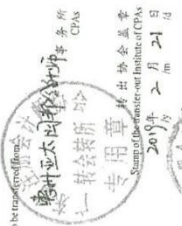 o be transferred from
亚太
事务所
CPAs
转会转所
专用章
转出协会盖章
Stamp of the transfer-out Institute of CPAs
2019年 2月 21日
/y /m /d